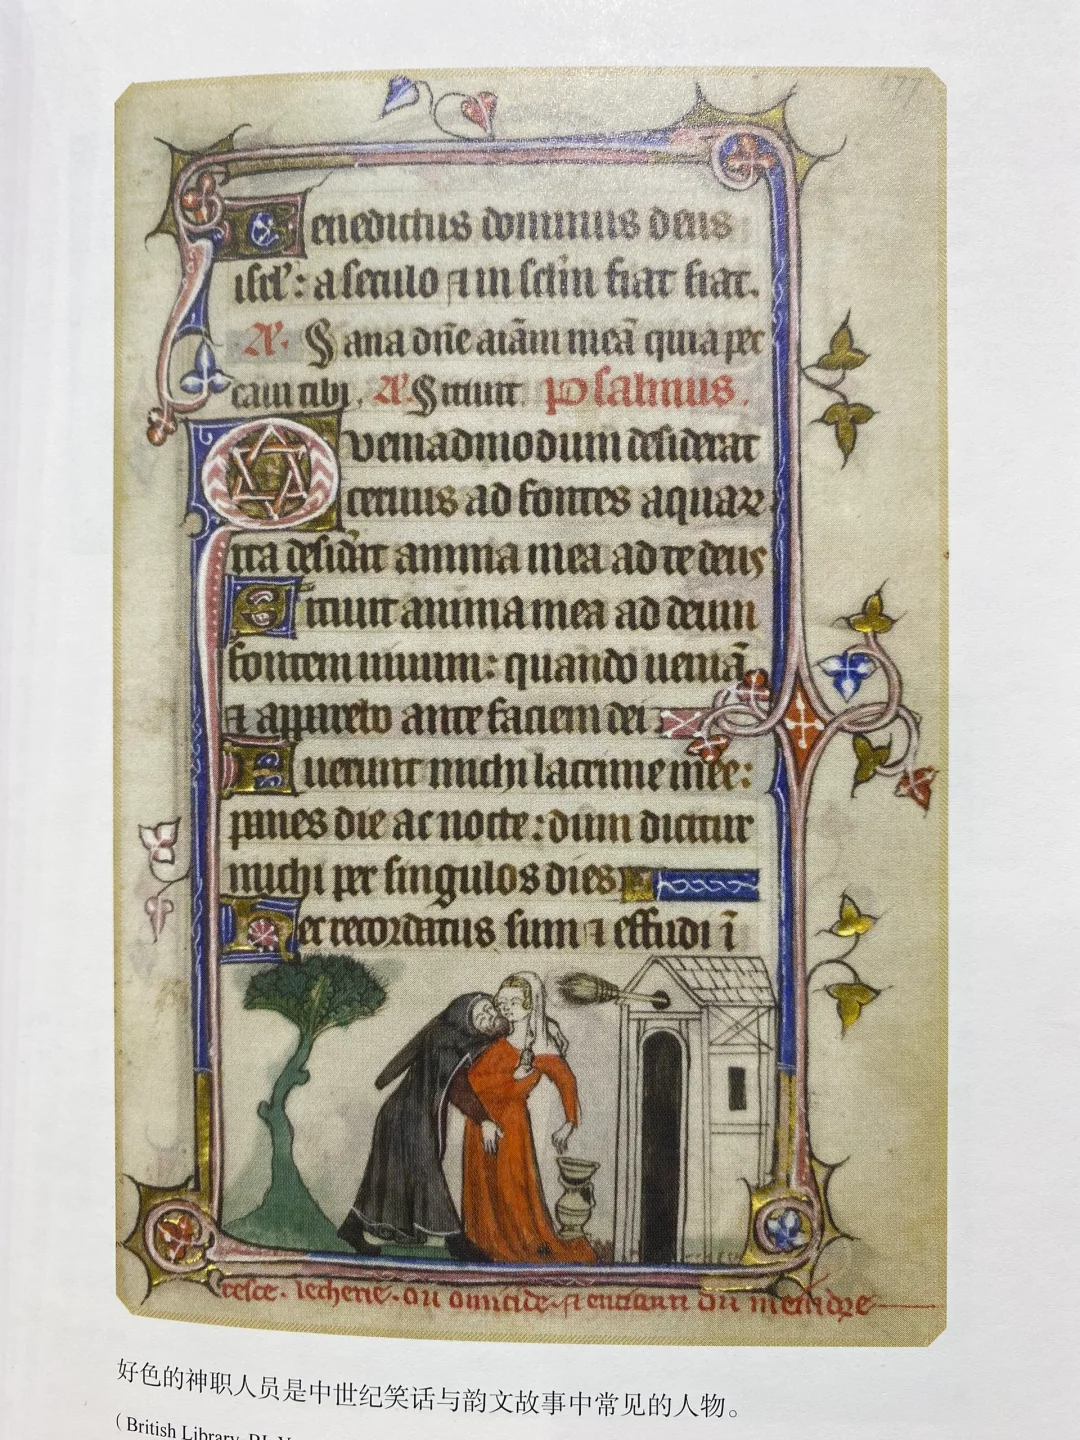 177
Benedictus dominus deus
isrl': a seculo ⁊ in sclm fiat fiat.
A'. Sana dñe aiãm meã quia pec
caui tibi. A'. Sitiuit. Psalmus.
Quemadmodum desiderat
ceruus ad fontes aquaꝝ
ita desidãt anima mea ad te deus
Sitiuit anima mea ad deum
fontem uiuum: quando ueniã
⁊ apparebo ante faciem dei
Fuerunt michi lacrime mee:
panes die ac nocte: dum dicitur
michi per singulos dies
Hec recordatus sum ⁊ effudi ĩ
lecherie. ou omicide.
好色的神职人员是中世纪笑话与韵文故事中常见的人物。
(British Library